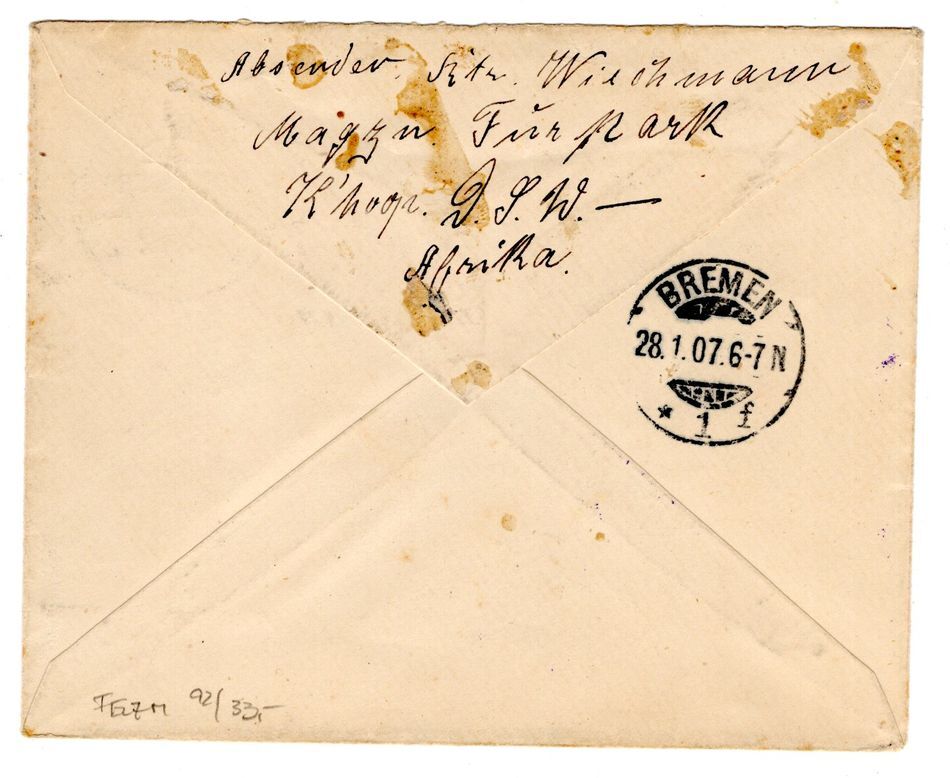 Absender. Rtr. Wiechmann
Magzn. Fŭrpark
K'hoop. D. S. W. —
Afrika.
BREMEN
28.1.07.6-7 N
* 1 f
92/33,-